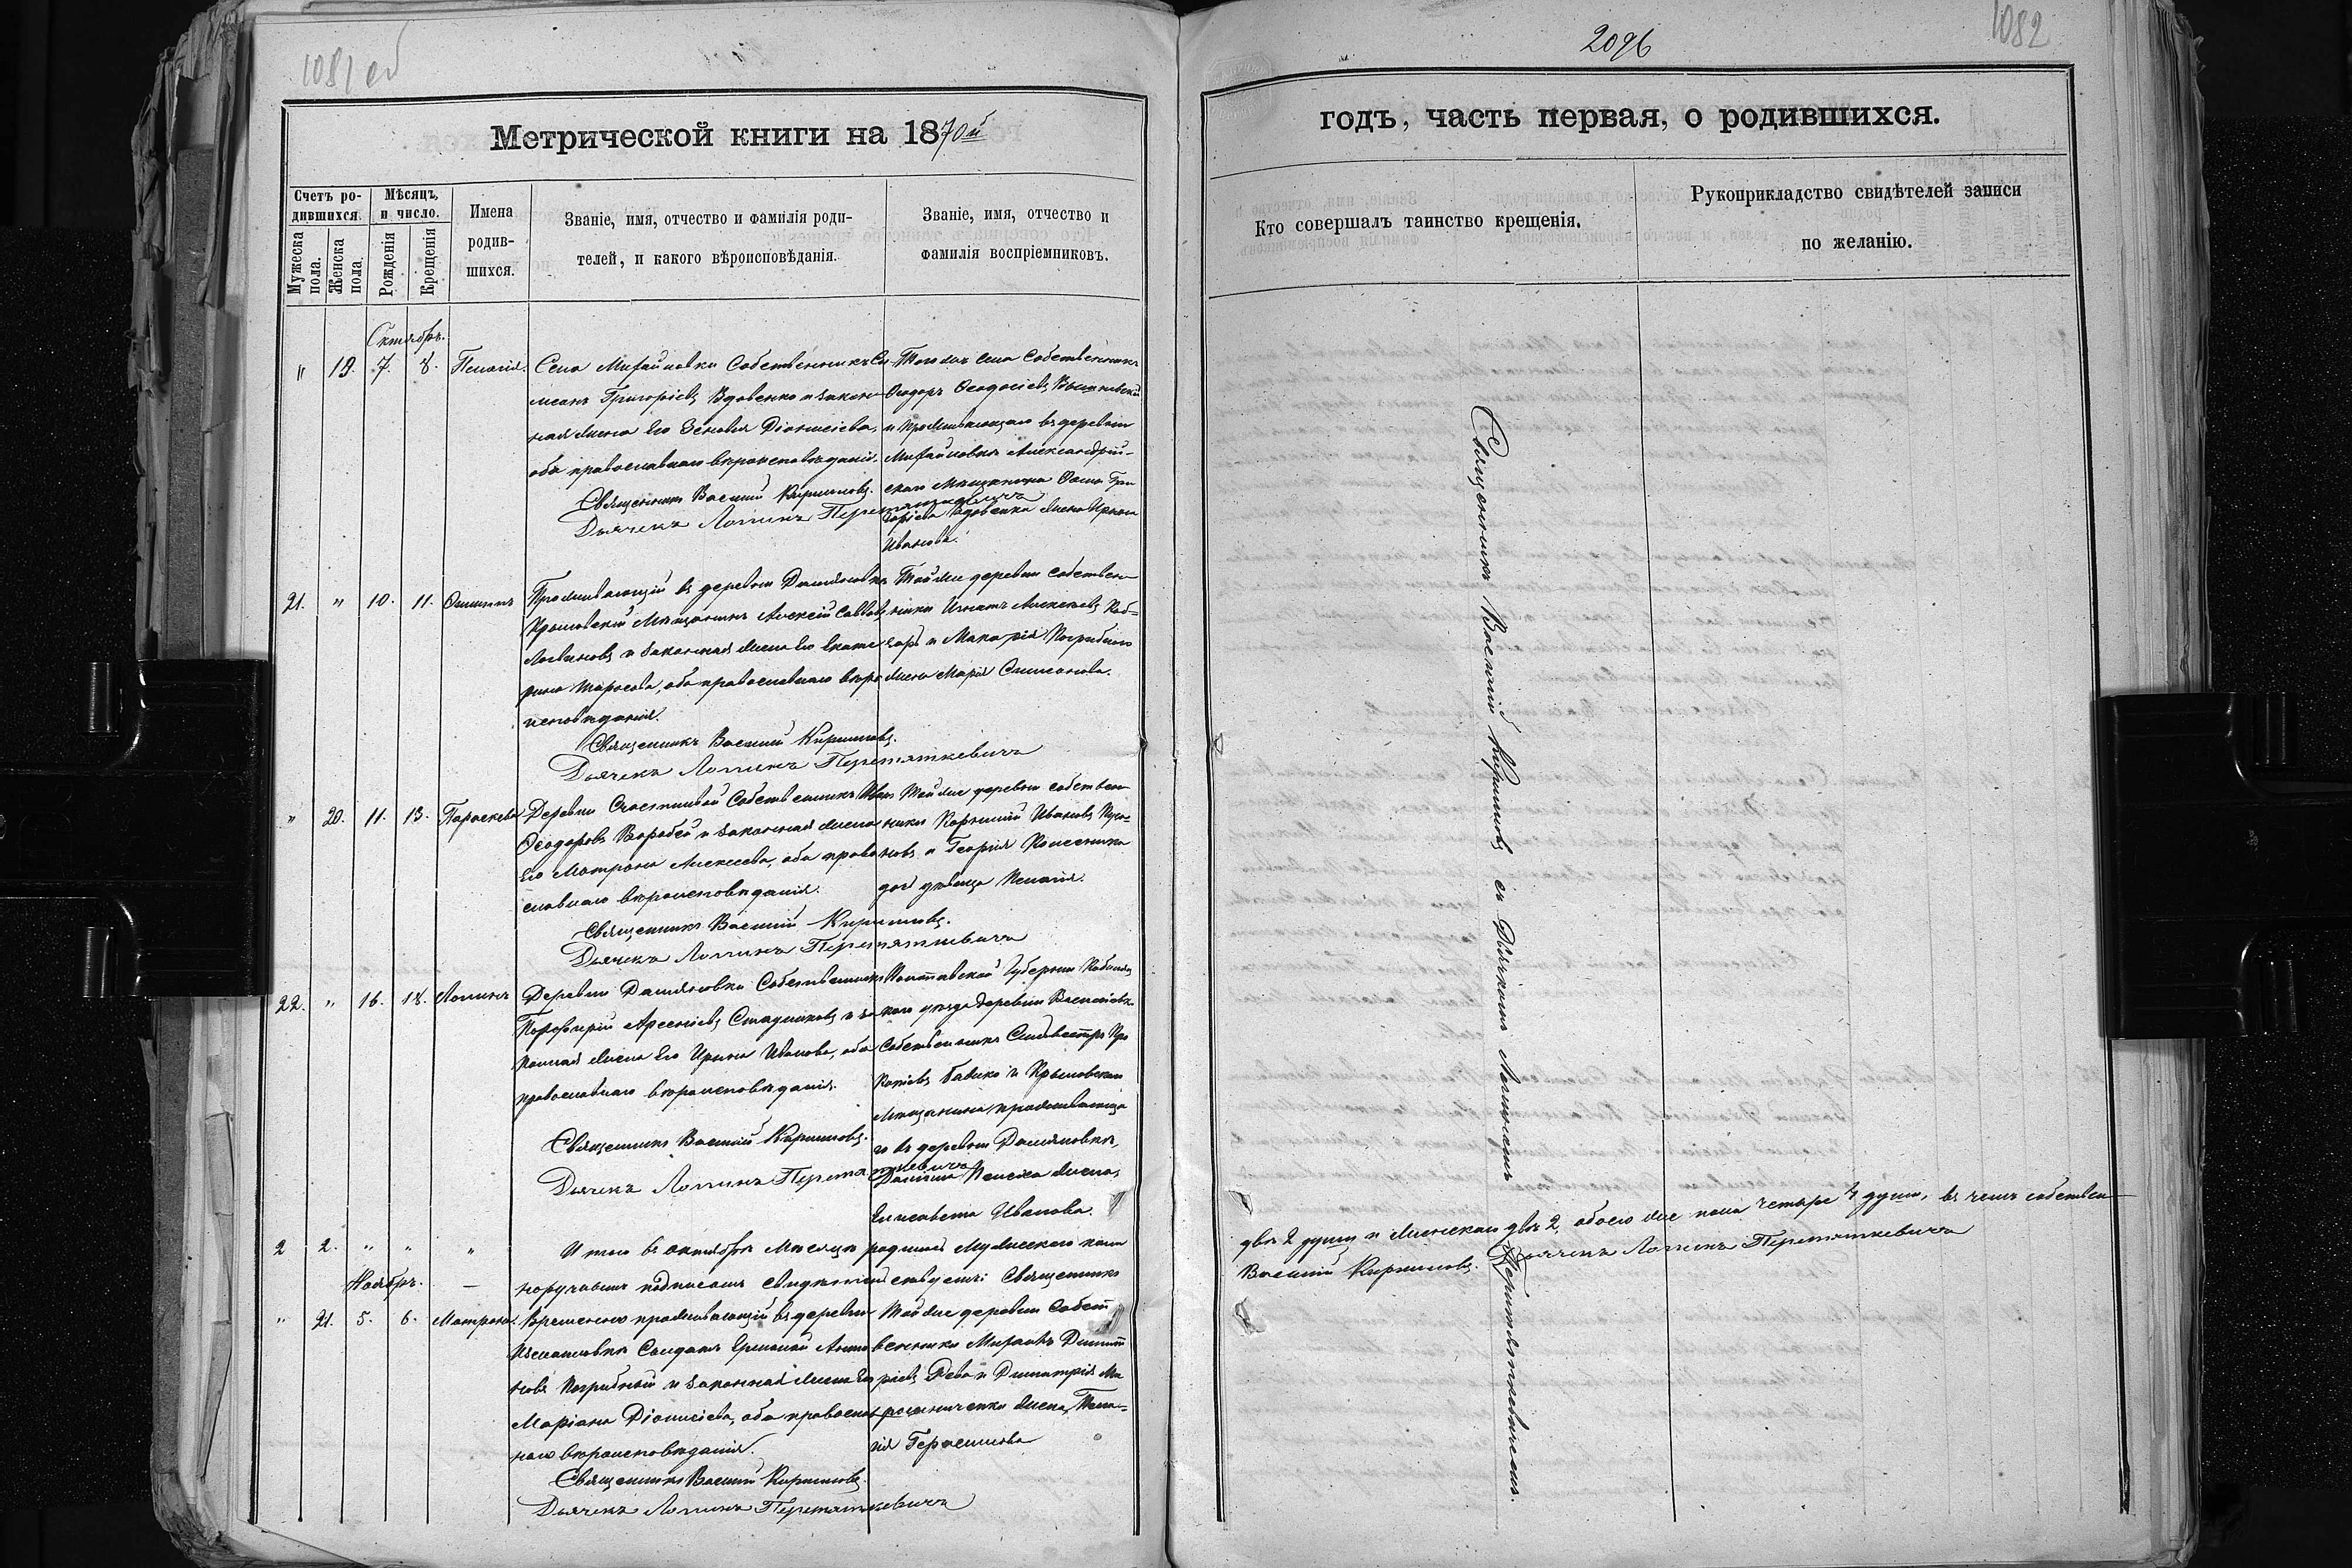 1081 об
Метрической книги на 1870й
Счетъ ро-
дившихся.
Мѣсяцъ,
и число.
Мужеска
пола.
Женска
пола.
Рожденія
Крещенія
Имена
родив-
шихся.
Званіе, имя, отчество и фамилія роди-
телей, и какого вѣроисповѣданія.
Званіе, имя, отчество и
фамилія воспріемниковъ.
Октябрь.
" 19. 7. 8. Пелагія.
Села Михайловки Собственникъ Си-
меонъ Григоріевъ Вдовенко и закон-
ная жена Его Зеновія Діонисіева,
оба православнаго вѣроисповѣданія.
Священникъ Василій Кириловъ.
Дьячекъ Логинъ Перетяткевичъ
Того же Села Собственникъ
Ѳеодоръ Ѳеодосіевъ
и проживающаго въ деревни
Михайловкѣ Александрій-
скаго Мѣщанина Ѳомы Гри
горіева Вдовенка жена Ирина
Иванова.
21. " 10. 11.
Проживающій въ деревни Даміановкѣ
Крыловскій Мѣщанинъ Алексій Саввовъ
Логвиновъ и законная жена Его Екате
рина Тарасова, оба православнаго вѣро
исповѣданія.
Священникъ Василій Кириловъ.
Дьячекъ Логинъ Перетяткевичъ
Той же деревни собствен
ники Игнатъ Алексѣевъ Коб-
зарь и Макарія Погрибнаго
жена Марія Симеонова.
" 20. 11. 13. Параскева
Деревни Счастливой Собственникъ Иванъ
Ѳеодоровъ Воробей и законная жена
Его Матрона Алексеева, оба право
славнаго вѣроисповѣданія.
Священникъ Василій Кириловъ.
Дьячекъ Логинъ Перетяткевичъ
Той же деревни собствен
ники Корнилій Ивановъ
и Георгія Колесника
дочь дѣвица Пелагія.
22. " 16. 18. Логинъ
Деревни Даміяновки Собственникъ
Порфирій Арсеніевъ Стадниковъ и за
конная жена Его Ирина Иванова, оба
православнаго вѣроисповѣданія.
Священникъ Василій Кириловъ.
Дьячекъ Логинъ Перетяткевичъ
Полтавской Губерніи Кобеляц
каго уѣзда деревни Василіевки
Собственникъ Сильвестръ Про
копіевъ Бабико и Крыловскаго
Мѣщанина проживающа
го въ деревни Даміяновкѣ,
Даніила жена,
Елисавета Иванова.
2 2. " " "
И того въ октябрѣ Мѣсяцѣ родилось Мужескаго пола
норучнымъ подписомъ свидетельствуемъ: Священникъ
Ноябрь. —
" 21. 5. 6. Матрона.
Временно проживающій въ деревни
Измаиловкѣ Солдатъ Ермолай Анто
новъ Погрибный и законная жена Его
Маріана Діонисіева, оба православ
наго вѣроисповѣданія.
Священникъ Василій Кириловъ.
Дьячекъ Логинъ Перетяткевичъ
Той же деревни Собст
венники Михаилъ Димит
ріевъ Дева и Димитрія Ми
рошниченка жена, Пела-
гія Герасимова
2096
1082
годъ, часть первая, о родившихся.
Кто совершалъ таинство крещенія.
Рукоприкладство свидѣтелей записи
по желанію.
Священникъ Василій Кириловъ съ Дьячкомъ Логиномъ Перетяткевичемъ.
двѣ 2 души и женскаго двѣ 2, обоего же пола четыре 4 души, въ чемъ собствен
Василій Кириловъ. Дьячекъ Логинъ Перетяткевичъ